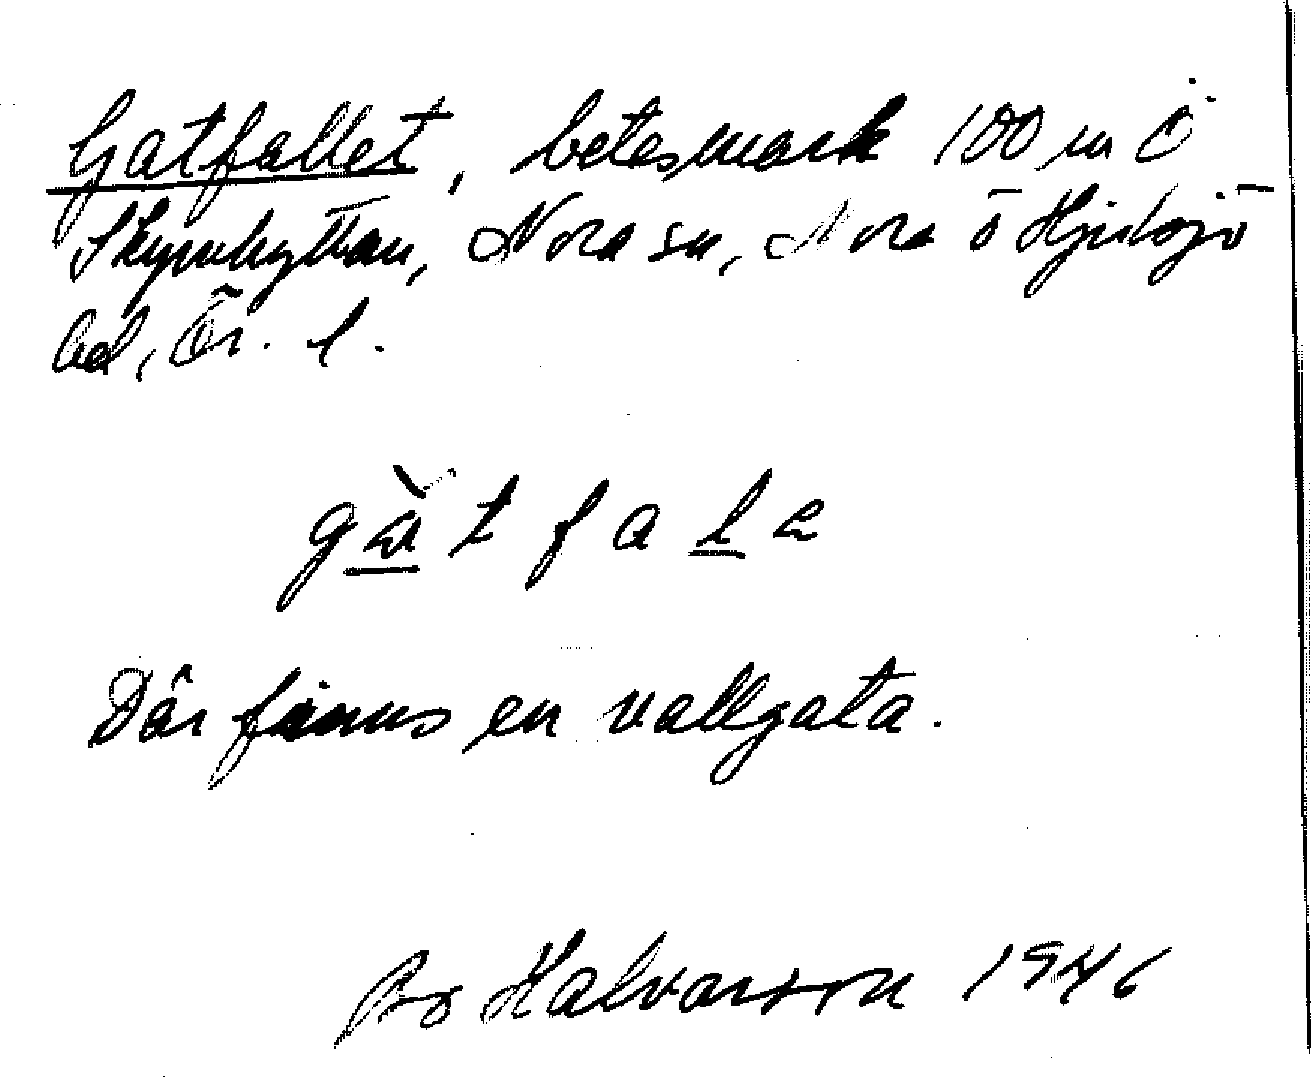 Gatfallet, betesmark 100 m Ö
Skymhyttan, Nora sn, Nora o Hjulsjö
bd, Ör. l.
gàtfala
Där finns en vallgata.
Bo Halvarsson 1946